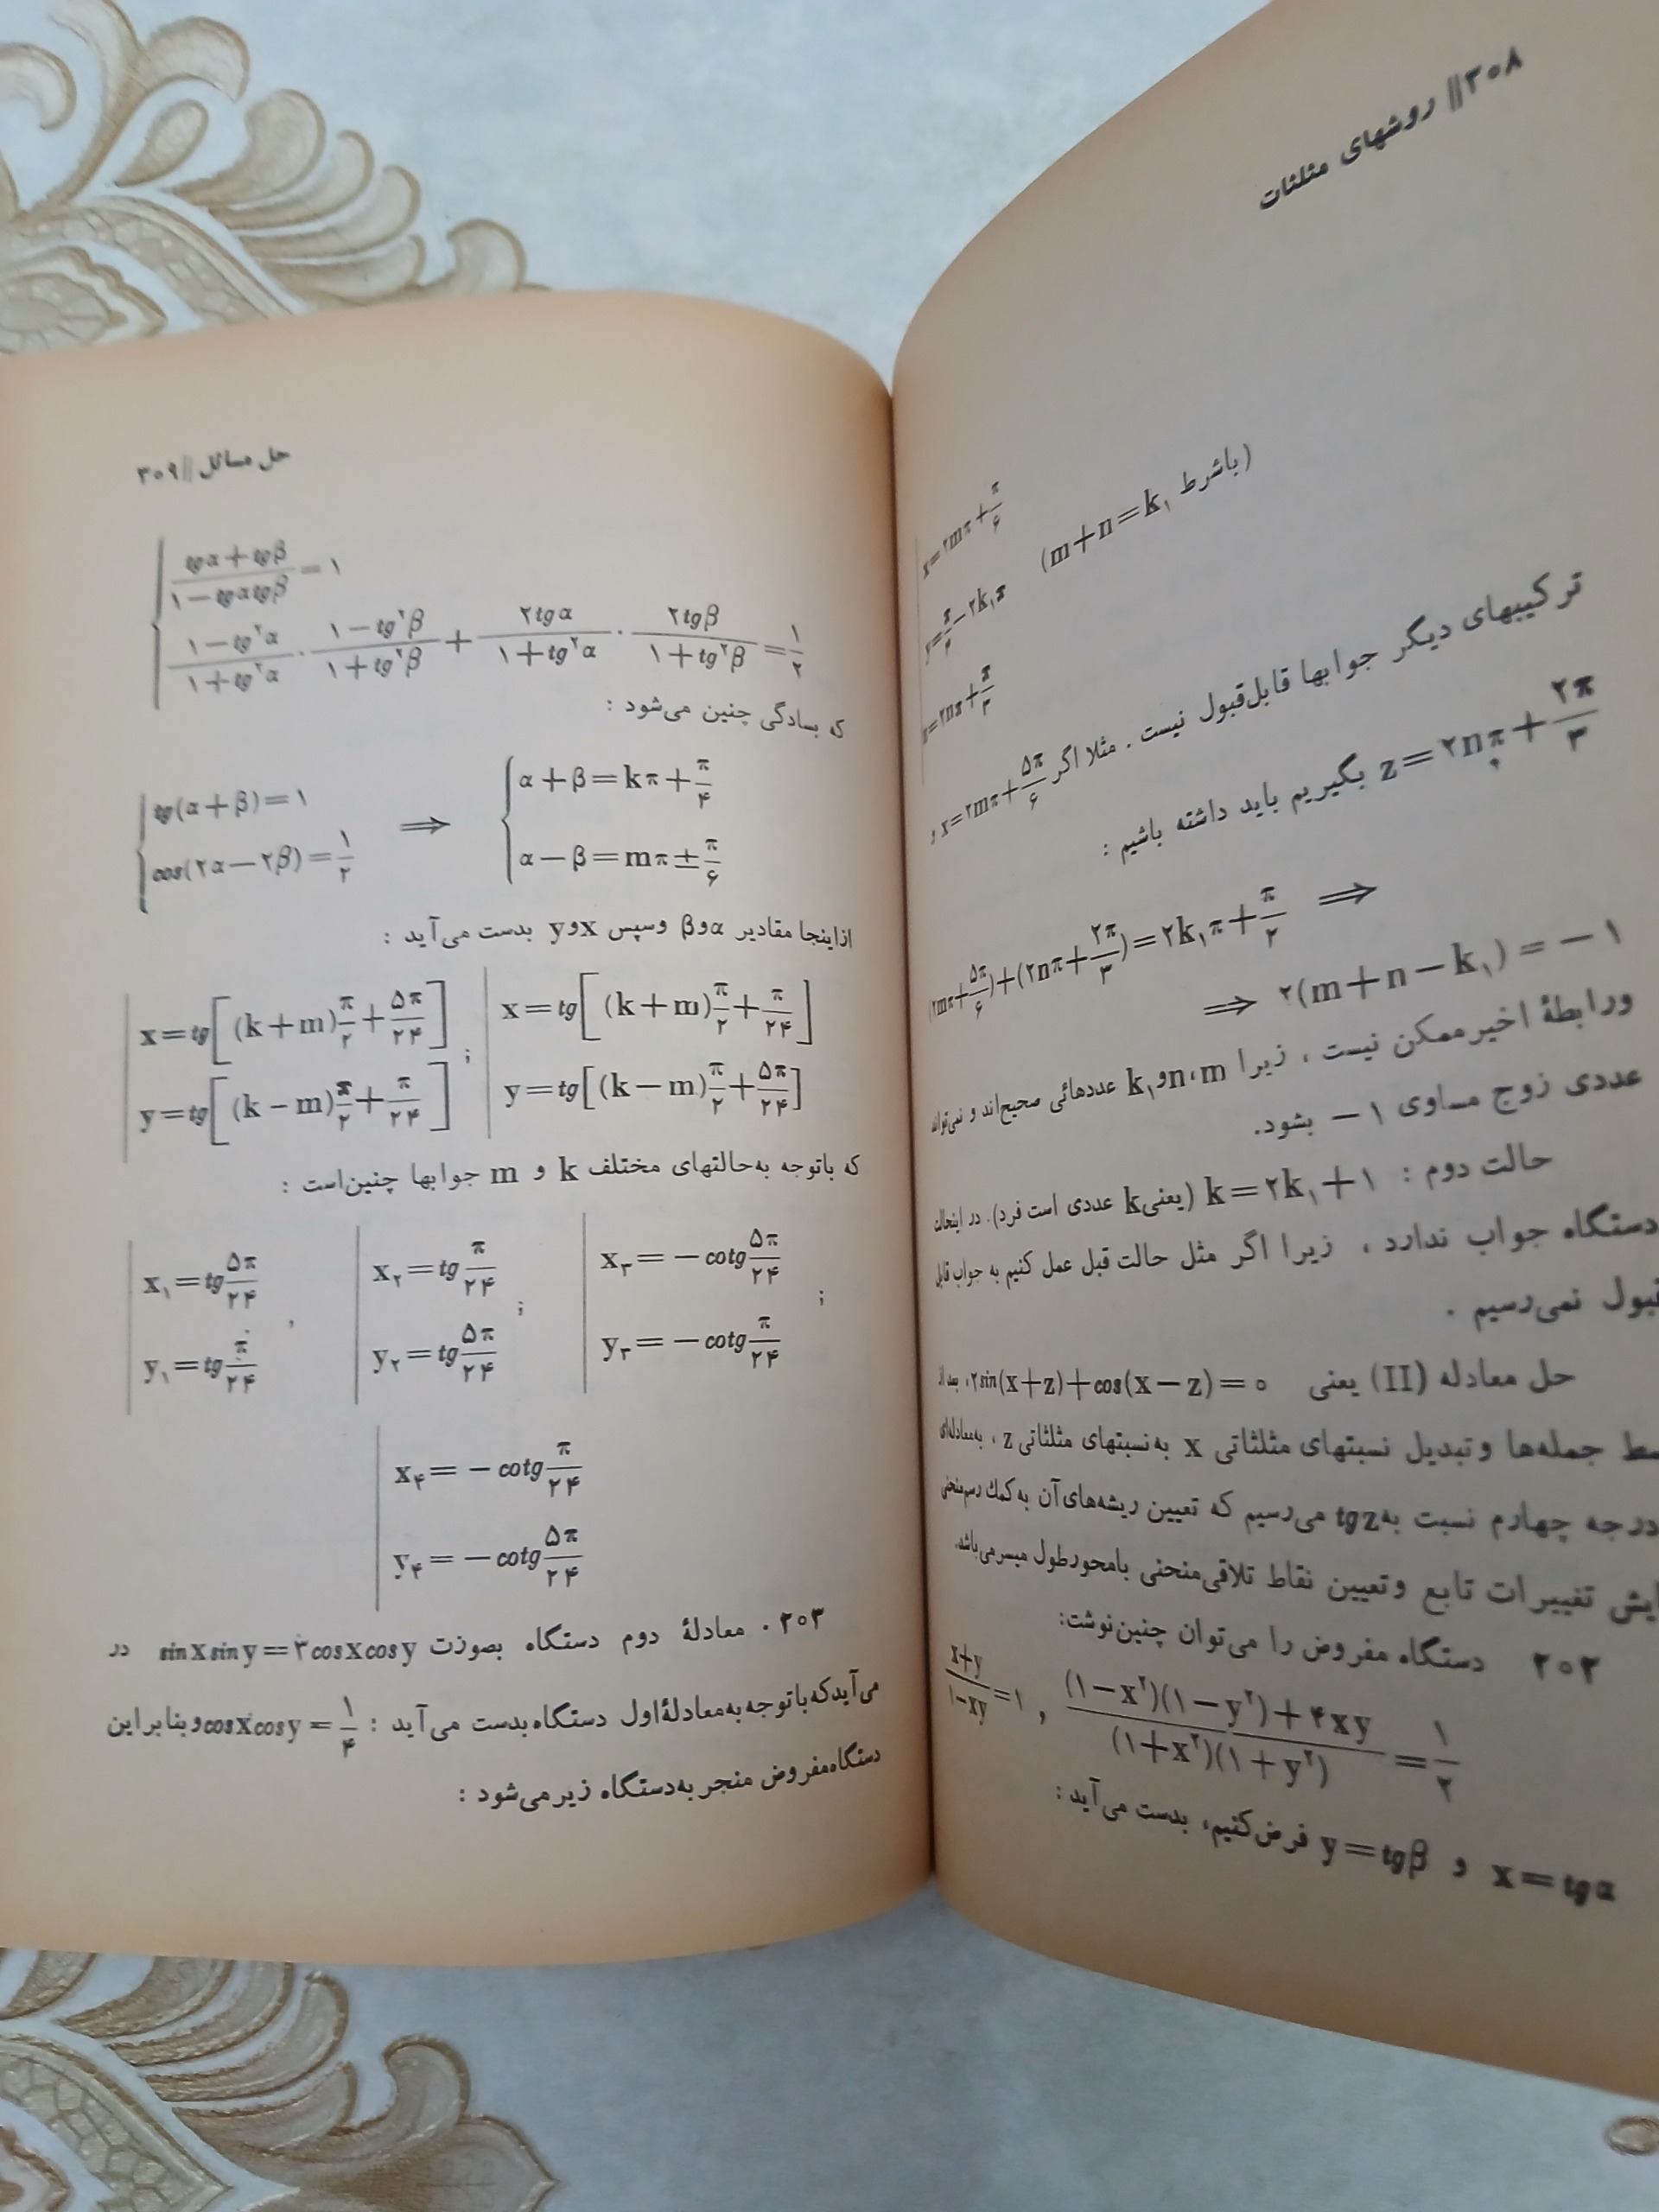 ۳۰۸ // روشهای مثلثات
x=۲mπ+π/۶
y=π/۴-۲k₁π (m+n=k₁ باشرط)
z=۲nπ+π/۳
ترکیبهای دیگر جوابها قابل‌قبول نیست . مثلا اگر x=۲mπ+۵π/۶ و
z=۲nπ+۲π/۳ بگیریم باید داشته باشیم :
(۲mπ+۵π/۶)+(۲nπ+۲π/۳)=۲k₁π+π/۲ ⟹
⟹ ۲(m+n-k₁)=-۱
ورابطهٔ اخیرممکن نیست ، زیرا m،nوk₁ عددهائی صحیح‌اند و نمی‌تواند
عددی زوج مساوی ۱- بشود.
حالت دوم : k=۲k₁+۱ (یعنیk عددی است فرد). در اینحالت
دستگاه جواب ندارد ، زیرا اگر مثل حالت قبل عمل کنیم به جواب قابل
قبول نمی‌رسیم .
حل معادله (II) یعنی ۲sin(x+z)+cos(x-z)=۰، بعد از
بسط جمله‌ها وتبدیل نسبتهای مثلثاتی x به‌نسبتهای مثلثاتی z ، به‌معادله‌ای
درجه چهارم نسبت به‌tgz می‌رسیم که تعیین ریشه‌های‌آن به‌کمك رسم‌منحنی
تغییرات تابع وتعیین نقاط تلاقی‌منحنی بامحورطول میسرمی‌باشد.
۲۰۲ دستگاه مفروض را می‌توان چنین‌نوشت:
(x+y)/(۱-xy)=۱ , ((۱-x²)(۱-y²)+۴xy)/((۱+x²)(۱+y²))=۱/۲
x=tgα و y=tgβ فرض‌کنیم، بدست می‌آید :
حل مسائل // ۳۰۹
(tgα+tgβ)/(۱-tgαtgβ)=۱
(۱-tg²α)/(۱+tg²α)·(۱-tg²β)/(۱+tg²β)+۲tgα/(۱+tg²α)·۲tgβ/(۱+tg²β)=۱/۲
که بسادگی چنین می‌شود :
tg(α+β)=۱ ⟹ α+β=kπ+π/۴
cos(۲α-۲β)=۱/۲ α-β=mπ±π/۶
ازاینجا مقادیر αوβ وسپس xوy بدست می‌آید :
x=tg[(k+m)π/۲+۵π/۲۴] ; x=tg[(k+m)π/۲+π/۲۴]
y=tg[(k-m)π/۲+π/۲۴] y=tg[(k-m)π/۲+۵π/۲۴]
که باتوجه به‌حالتهای مختلف k و m جوابها چنین‌است :
x₁=tg۵π/۲۴ , x₂=tgπ/۲۴ ; x₃=-cotg۵π/۲۴ ;
y₁=tgπ/۲۴ y₂=tg۵π/۲۴ y₃=-cotgπ/۲۴
x₄=-cotgπ/۲۴
y₄=-cotg۵π/۲۴
۲۰۳ . معادلهٔ دوم دستگاه بصورت sinxsiny=۳cosxcosy در
می‌آیدکه‌باتوجه به‌معادلهٔ‌اول دستگاه‌بدست می‌آید : cosxcosy=۱/۴وبنابراین
دستگاه‌مفروض منجر به‌دستگاه زیرمی‌شود :